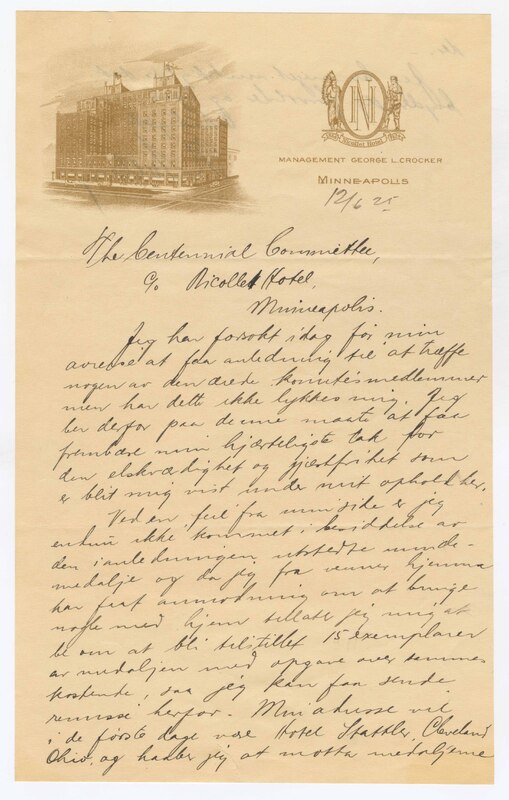 N
Nicollet Hotel
MANAGEMENT GEORGE L. CROCKER
MINNEAPOLIS
12/6 25
The Centennial Committee,
c/o Nicollet Hotel,
Minneapolis.
Jeg har forsøkt idag før min
avreise at faa anledning til at træffe
nogen av den ærede komitésmedlemmer
men har dette ikke lykkes mig. Jeg
ber derfor paa denne maate at faa
frembære min hjærteligste tak for
den elskværdighet og gjestfrihet som
er blit mig vist under mit ophold her.
Ved en feil fra min side er jeg
endnu ikke kommet i besiddelse av
den i anledningen utstedte minde-
medalje og da jeg fra venner hjemme
har faat anmodning om at bringe
nogle med hjem tillater jeg mig at
be om at bli tilstillet 15 exemplarer
av medaljen med opgave over sammes
kostende, saa jeg kan faa sende
remisse herfor. Min adresse vil
i de første dage være Hotel Stattler, Cleveland
Ohio, og haaber jeg at motta medaljerne